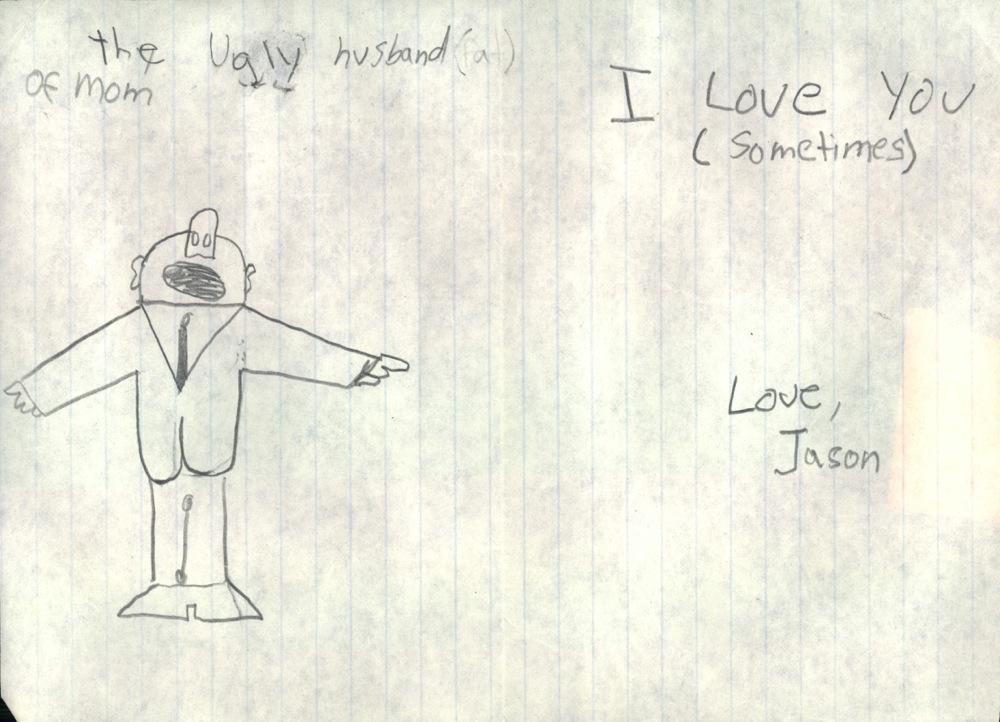 the Ugly husband (fat)
of mom
I Love You
(Sometimes)
Love,
Jason